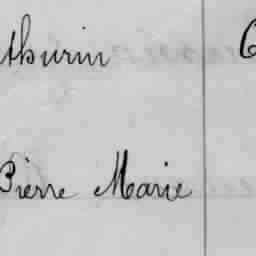 thurin
Pierre Marie